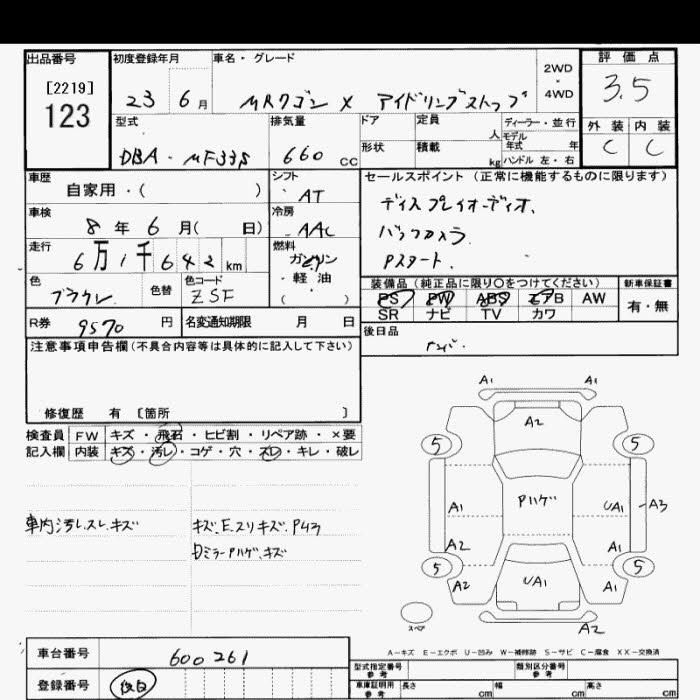 出品番号
[2219]
123
初度登録年月
23 6 月
車名・グレード
MRワゴン X アイドリングストップ
2WD
・
4WD
評価点
3.5
外装 内装
C C
型式
DBA・MF33S
排気量
660 CC
ドア 定員 人
形状 積載 kg
ディーラー・並行
モデル年式 年
ハンドル 左・右
車歴
自家用・( )
シフト
AT
車検
8 年 6 月( 日)
冷房
AAC
走行
6 万 1 千 6 4 2 km
燃料
ガソリン
・
軽油
( )
色
ブラウン
色替
色コード
ZSF
R券 9570 円
名変通知期限 月 日
セールスポイント (正常に機能するものに限ります)
ディスプレイオーディオ、
バックカメラ
Pスタート、
装備品 (純正品に限り○をつけてください)
PS PW ABS エアB AW
SR ナビ TV カワ
新車保証書
有・無
後日品
注意事項申告欄(不具合内容等は具体的に記入して下さい)
修復歴 有 〔箇所 〕
検査員 FW キズ・飛石・ヒビ割・リペア跡・×要
記入欄 内装 キズ・汚レ・コゲ・穴・スレ・キレ・破レ
車内汚レ.スレ.キズ
キズ.E.スリキズ.P43
Dミラー Pハゲ.キズ
A1 A1
A2
5 5
A1 Pハゲ UA1 A3
A2 A1
5 5
A2 UA1 A1
スペア
A2
A-キズ E-エクボ U-凹み W-補修跡 S-サビ C-腐食 XX-交換済
車台番号 600261
登録番号 後日
型式指定番号
参考
類別区分番号
参考
車庫証明用
参考
長さ cm 幅 cm 高さ cm